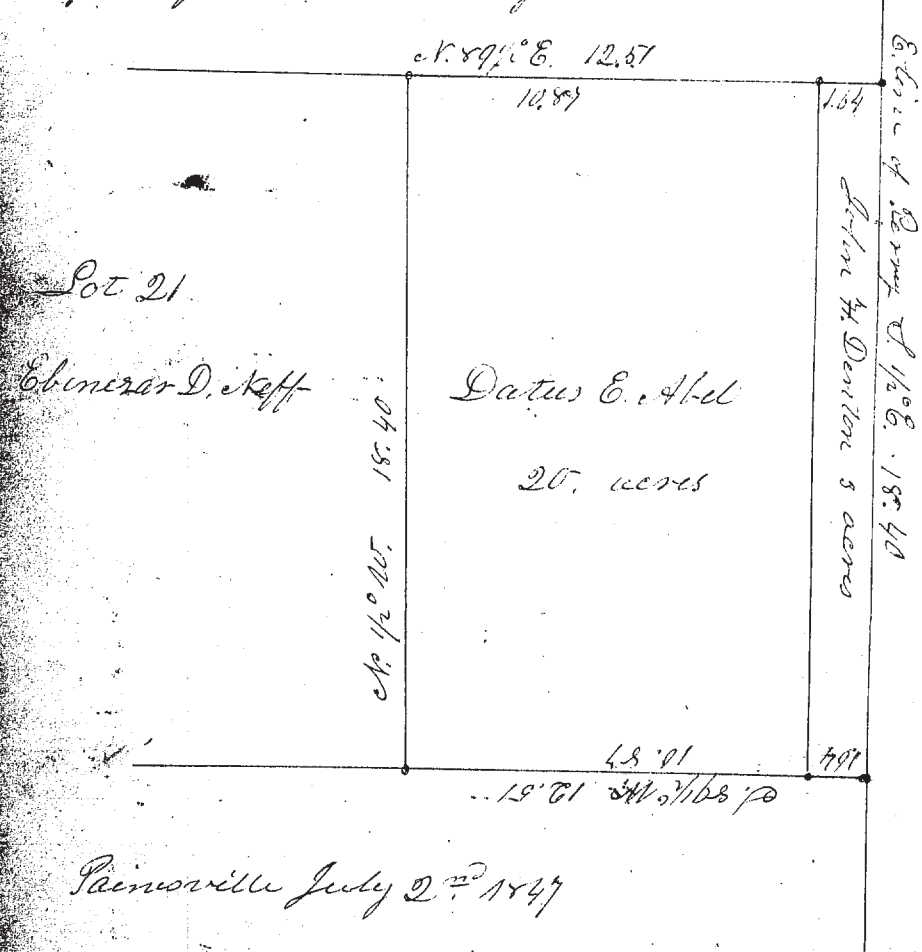 N. 89½° E. 12.51
10.87
1.64
E. line of Perry S ½° E. 18.40
John H. Denton 3 acres
Lot 21
Ebinezar D. Neff
Datus E. Abel
20. acres
N. ½° W. 18.40
10.87
1.64
S. 89½° W. 12.51
Painesville July 2nd 1847